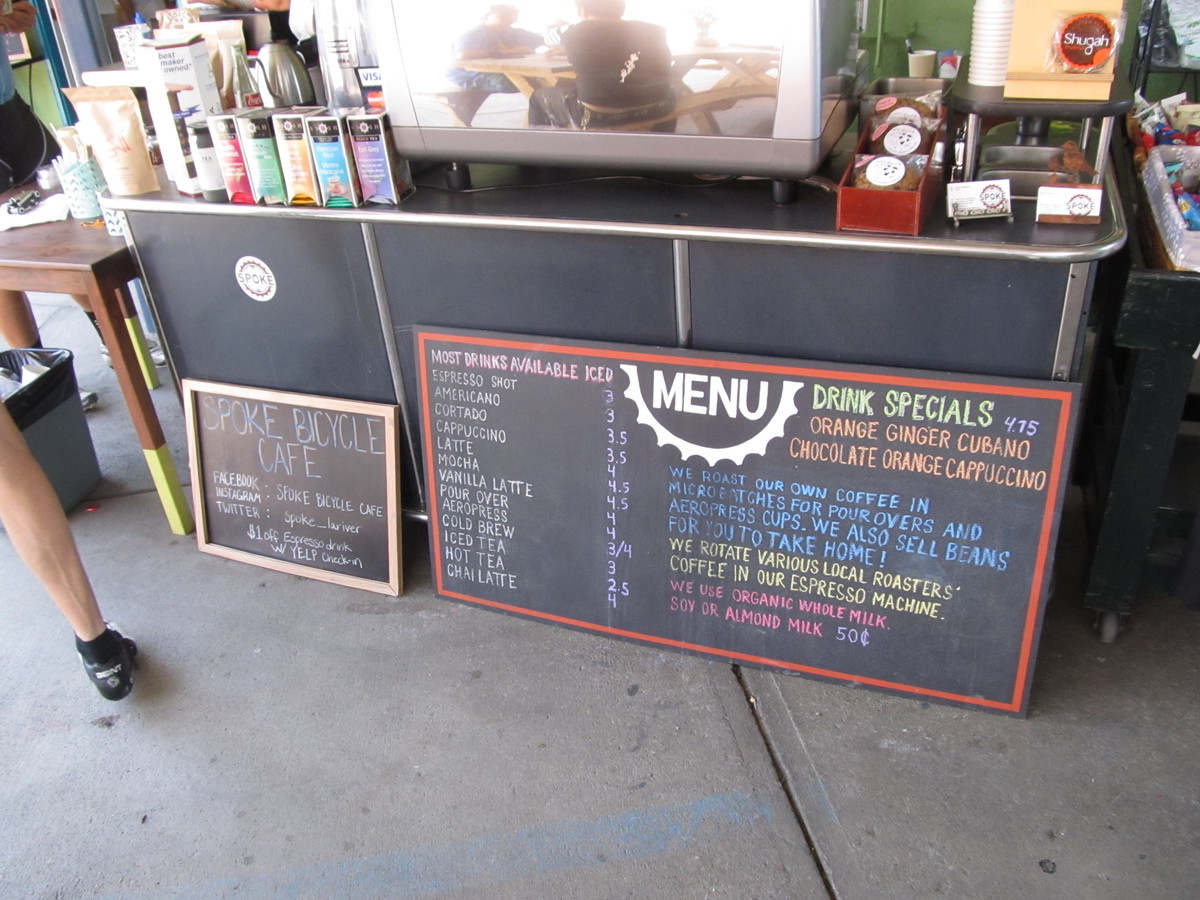 best
maker
owned.
VISA
Earl Grey
Shugah
SPOKE
SPOKE
SPOKE
SPOKE BICYCLE
CAFE
FACEBOOK :
INSTAGRAM : SPOKE BICYCLE CAFE
TWITTER : spoke_lariver
$1 off Espresso drink
W/ YELP Check-in
MOST DRINKS AVAILABLE ICED
ESPRESSO SHOT 3
AMERICANO 3
CORTADO 3.5
CAPPUCCINO 3.5
LATTE 4
MOCHA 4.5
VANILLA LATTE 4.5
POUR OVER 4
AEROPRESS 4
COLD BREW 4
ICED TEA 3/4
HOT TEA 3
CHAI LATTE 2.5
4
MENU
DRINK SPECIALS 4.75
ORANGE GINGER CUBANO
CHOCOLATE ORANGE CAPPUCCINO
WE ROAST OUR OWN COFFEE IN
MICROBATCHES FOR POUR OVERS AND
AEROPRESS CUPS. WE ALSO SELL BEANS
FOR YOU TO TAKE HOME!
WE ROTATE VARIOUS LOCAL ROASTERS'
COFFEE IN OUR ESPRESSO MACHINE.
WE USE ORGANIC WHOLE MILK.
SOY OR ALMOND MILK 50¢
GIANT